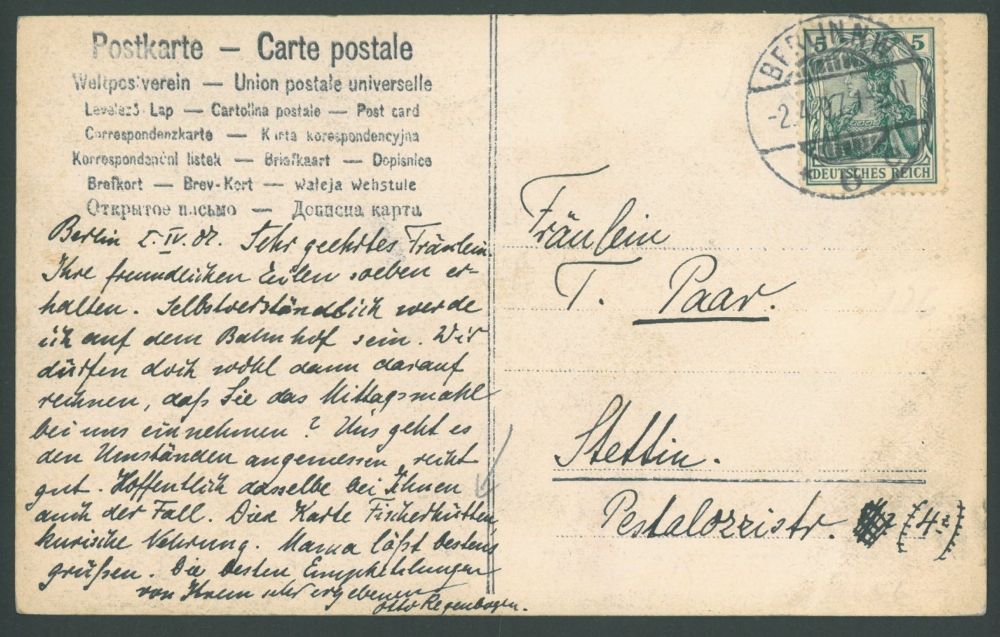 Postkarte — Carte postale
Weltpostverein — Union postale universelle
Levelező Lap — Cartolina postale — Post card
Correspondenzkarte — Karta korespondencyjna
Korrespondenční listek — Briefkaart — Dopisnice
Brefkort — Brev-Kort — Weteja Wehstule
Открытое письмо — Дописна карта
Berlin 2. IV. 07. Sehr geehrtes Fräulein.
Ihre freundlichen Zeilen soeben er-
halten. Selbstverständlich werde
ich auf dem Bahnhof sein. Wir
dürfen doch wohl dann darauf
rechnen, daß Sie das Mittagsmahl
bei uns einnehmen? Uns geht es
den Umständen angemessen recht
gut. Hoffentlich dasselbe bei Ihnen
auch der Fall. Karte Fischerhütten
kurische Nehrung. Mama läßt bestens
grüßen. Die besten Empfehlungen
von Ihrem sehr ergebenen
Otto Regenbogen.
BERLIN N.W.
-2.4.07.1
6
5 5
DEUTSCHES REICH
Fräulein
T. Paar.
Stettin.
Pestalozzistr. (42)